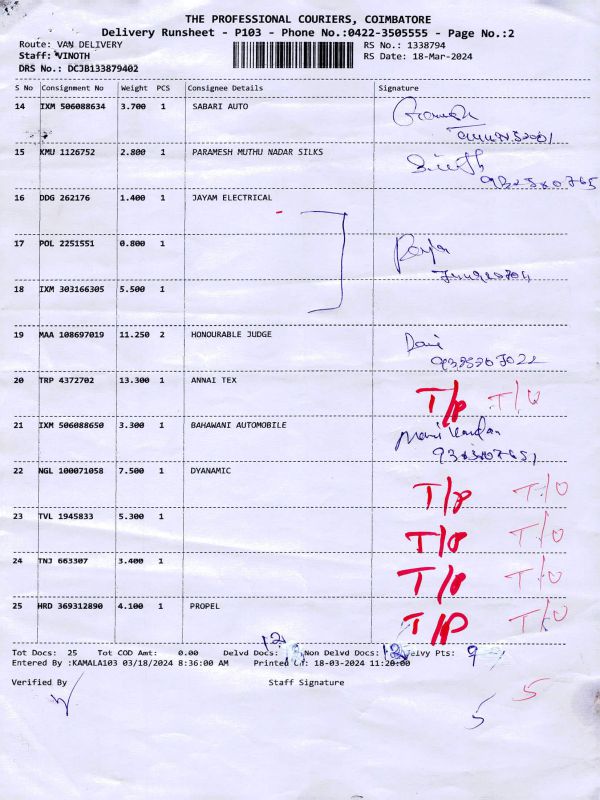 THE PROFESSIONAL COURIERS, COIMBATORE
Delivery Runsheet - P103 - Phone No.:0422-3505555 - Page No.:2
Route: VAN DELIVERY RS No.: 1338794
Staff: VINOTH RS Date: 18-Mar-2024
DRS No.: DCJB133879402
S No Consignment No Weight PCS Consignee Details Signature
14 IXM 506088634 3.700 1 SABARI AUTO
15 KMU 1126752 2.800 1 PARAMESH MUTHU NADAR SILKS
16 DDG 262176 1.400 1 JAYAM ELECTRICAL
17 POL 2251551 0.800 1
18 IXM 303166305 5.500 1
19 MAA 108697019 11.250 2 HONOURABLE JUDGE
20 TRP 4372702 13.300 1 ANNAI TEX T/P T/U
21 IXM 506088650 3.300 1 BAHAWANI AUTOMOBILE
22 NGL 100071058 7.500 1 DYANAMIC T/P T/O
23 TVL 1945833 5.300 1 T/P T/U
24 TNJ 663307 3.400 1 T/P T/U
25 HRD 369312890 4.100 1 PROPEL T/P T/U
12
Tot Docs: 25 Tot COD Amt: 0.00 Delvd Docs: Non Delvd Docs: Delvy Pts: 9
Entered By :KAMALA103 03/18/2024 8:36:00 AM Printed On: 18-03-2024 11:20:00
Verified By Staff Signature
5 5